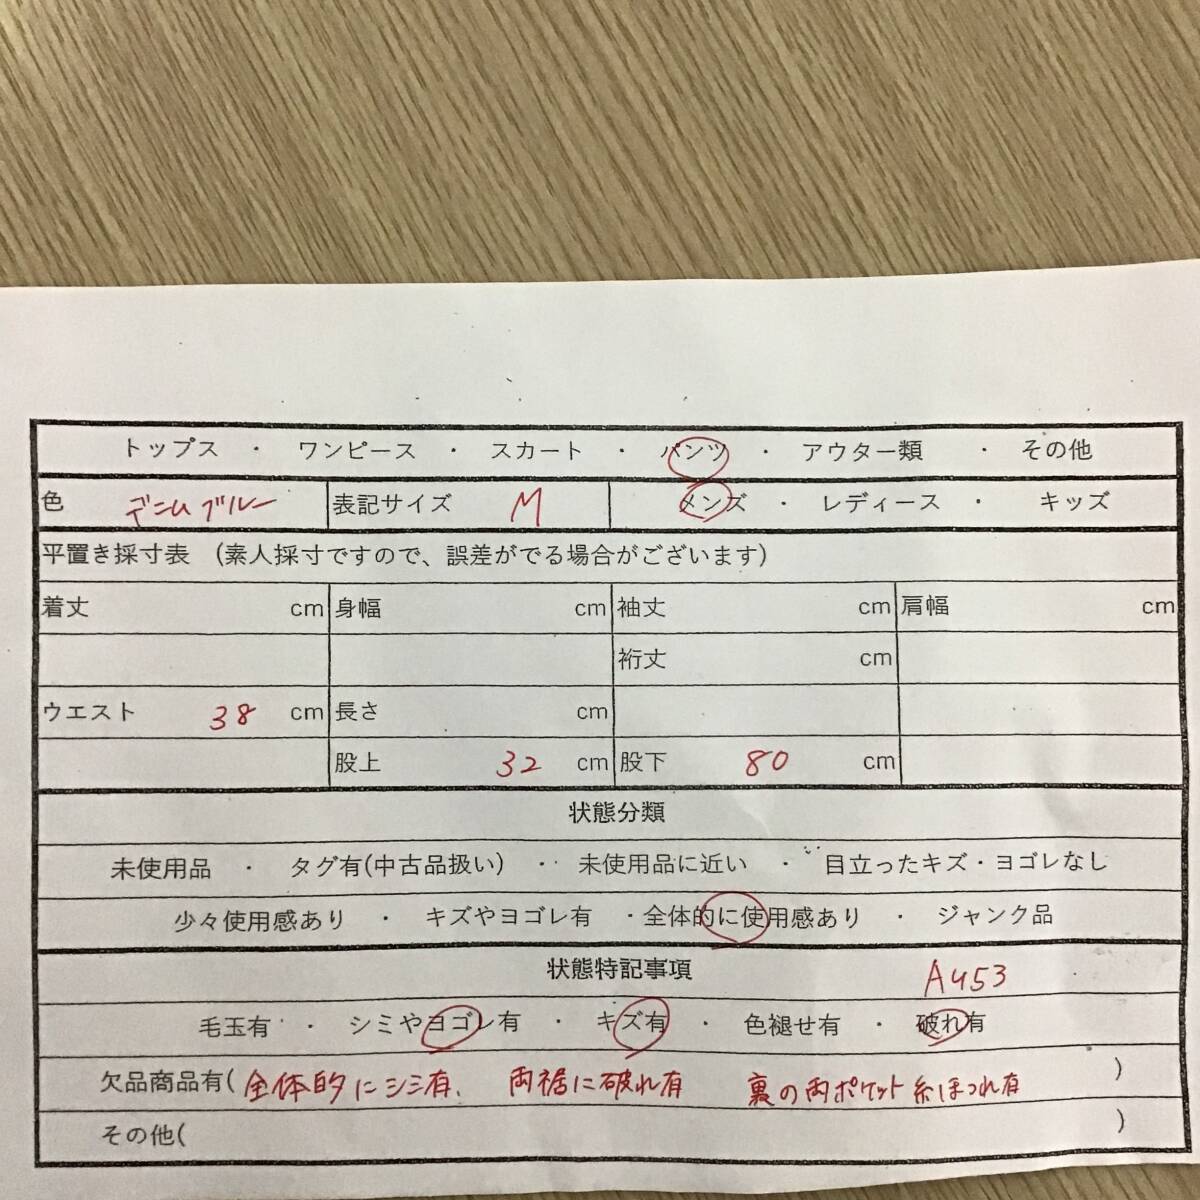 トップス ・ ワンピース ・ スカート ・ パンツ ・ アウター類 ・ その他
色 デニムブルー 表記サイズ M メンズ ・ レディース ・ キッズ
平置き採寸表 (素人採寸ですので、誤差がでる場合がございます)
着丈 cm 身幅 cm 袖丈 cm 肩幅 cm
裄丈 cm
ウエスト 38 cm 長さ cm
股上 32 cm 股下 80 cm
状態分類
未使用品 ・ タグ有(中古品扱い) ・ 未使用品に近い ・ 目立ったキズ・ヨゴレなし
少々使用感あり ・ キズやヨゴレ有 ・全体的に使用感あり ・ ジャンク品
状態特記事項 A453
毛玉有 ・ シミやヨゴレ有 ・ キズ有 ・ 色褪せ有 ・ 破れ有
欠品商品有( 全体的にシミ有、 両裾に破れ有 裏の両ポケット糸ほつれ有 )
その他( )